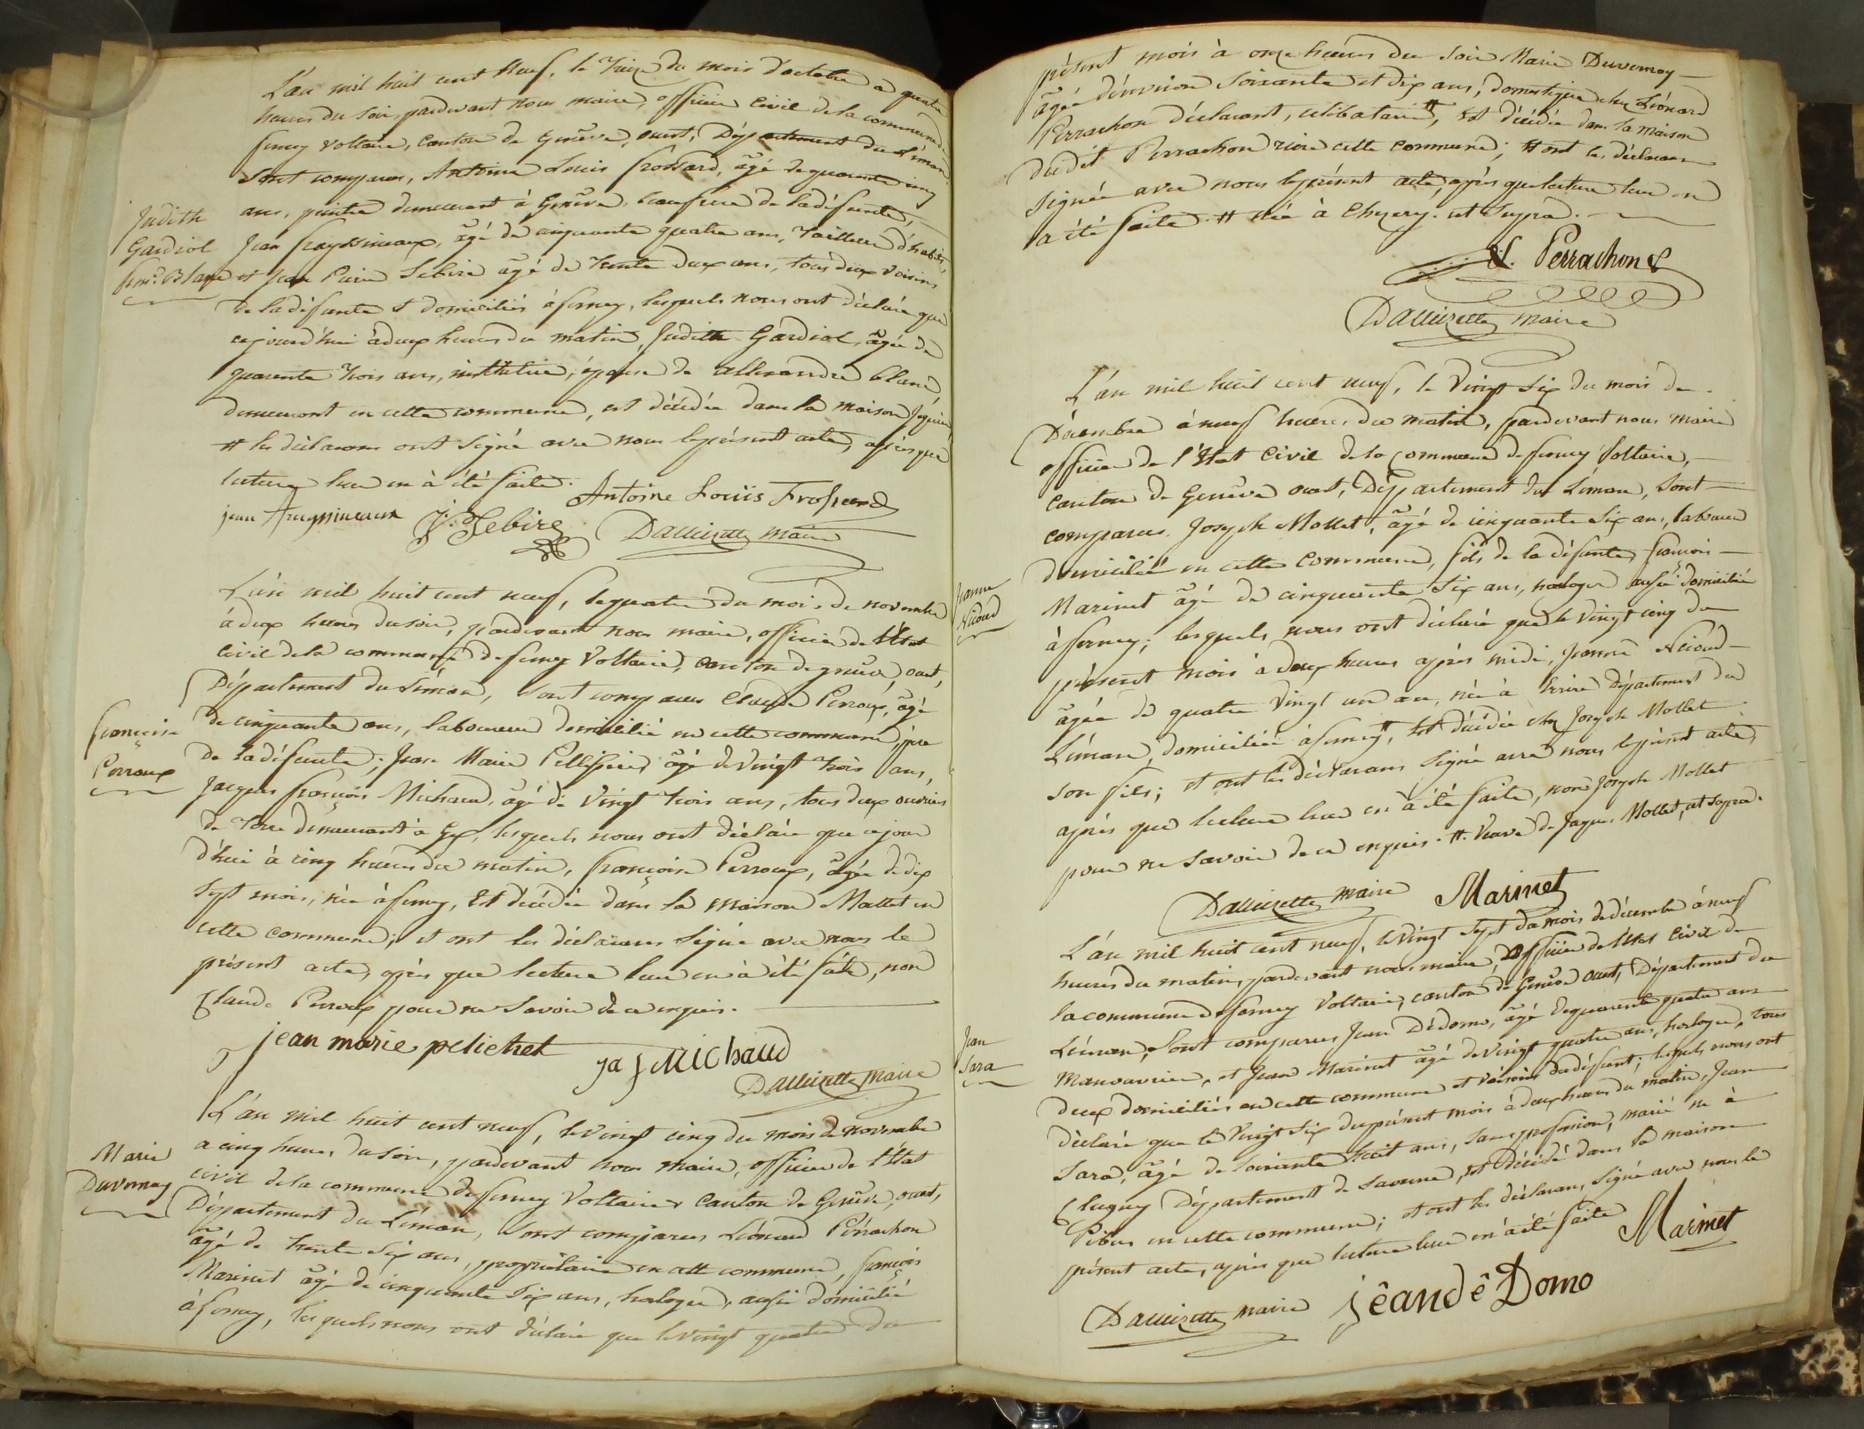 L'an mil huit cent Neuf, le Treize du mois d'octobre a quatre
heures du soir, pardevant nous maire, officier Civil de la commune de
ferney Voltaire, Canton de Genêve, ouest, Département du Léman
Sont comparus, Antoine Louis frossard, âgé de quarante cinq
ans, peintre demeurant à Genêve, beaufrere de la défunte,
Judith
Gardiol
fme Blanc
Jean frayssineaux, âgé de cinquante quatre ans, Tailleur d'habits,
et Jean Pierre Sebire âgé de Trente deux ans, tous deux voisins
de la défunte & domiciliés à ferney, lesquels nous ont déclaré que
cejourd'hui à deux heures du matin, Judith Gardiol, âgée de
quarante trois ans, institutrice, épouse de allexandre blanc
demeurant en cette commune, est décédée dans la maison
# les déclarans ont signé avec nous le présent acte, après que
lecture leur en à été faite.
Antoine Louïs Frossard
jean Frayssineaux J: P Sebire Dallizette maire
L'an mil huit cent neuf, le quatre du mois de novembre
à deux heures du soir, pardevant nous maire, officier de l'État
civil de la commune de ferney Voltaire, canton de genêve, ouest,
Département du Léman, sont comparus Claude Perroux, âgé
françoise
Perroux
de cinquante ans, laboureur domicilié en cette commune, père
de la défunte; Jean Marie Pellissier, âgé de vingt trois ans,
Jacques françois Michaud, âgé de vingt trois ans, tous deux ouvriers
de Terre demeurant à Gex, lesquels nous ont déclaré que cejour
d'hui à cinq heures du matin, françoise Perroux, âgée de dix
sept mois, née à ferney, Est décédée dans la maison Mallet en
cette commune; et ont les déclarans signé avec nous le
présent acte, après que lecture leur en à été faite, non
Claude Perroux pour ne savoir de ce enquis.
jean marie pelichet ja f Michaud
Dallizette maire
L'an mil huit cent neuf, le vingt cinq du mois de novembre
Marie
Duvernay
a cinq heures du soir, pardevant nous maire, officier de l'État
civil de la commune de ferney Voltaire, Canton de Genêve, ouest,
Département du Léman, sont comparus Léonard Perrachon
âgé de trente six ans, propriétaire en cette commune, françois
Marinet âgé de cinquante six ans, horloger, aussi domicilié
à ferney, lesquels nous ont déclaré que le vingt quatre du
présent mois à onze heures du soir Marie Duvernay
âgée d'environ Soixante et dix ans, domestique chez Léonard
Perrachon déclarant, célibataire #, Est décédée dans la maison
dudit Perrachon rière cette commune; # ont les déclarans
signée avec nous le présent acte, après que lecture leur en
a été faite. # née à Chezery. ut supra.
L. Perrachon
Dallizette maire
L'an mil huit cent neuf, le Vingt Six du mois de
Décembre à neuf heures du matin, pardevant nous Maire
officier de l'État Civil de la Commune de ferney Voltaire,
canton de Genêve ouest, Département du Léman, Sont
comparus Joseph Mollet, âgé de cinquante Six ans, laboureur
domicilié en cette commune, fils de la défunte, françois
Jeanne
Nicoud
Marinet âgé de cinquante Six ans, horloger aussi domicilié
à ferney; lesquels nous ont déclaré que le vingt cinq du
présent mois à deux heures après midi, Jeanne Nicoud
âgée de quatre vingt un an, née à Département du
Léman, domiciliée à ferney #, Est décédée chez Joseph Mollet
son fils; et ont les déclarans Signé avec nous le présent acte,
après que lecture leur en à été faite, non Joseph Mollet
pour ne savoir de ce enquis. # Veuve de Jaques Mollet, ut supra.
Dallizette maire Marinet
L'an mil huit cent neuf, le Vingt Sept du mois de décembre à neuf
heures du matin, pardevant nous maire, officier de l'État Civil de
la commune de ferney Voltaire, canton de Genêve ouest, Département du
Léman, Sont comparus Jean Dédomo, âgé de quarante quatre ans
Jean
Sara
Manouvrier, et Jean Marinet âgé de vingt quatre ans, horloger, tous
deux domiciliés en cette commune et voisins du défunt; lesquels nous ont
déclaré que le Vingt Six du présent mois à deux heures du matin, Jean
Sara, âgé de soixante huit ans, sans profession, marié né à
Clugny Département de Savenne, est décédé dans la maison
en cette commune; et ont les déclarans, signé avec nous le
présent acte, après que lecture leur en a été faite
Marinet
Dallizette maire jêandê Domo